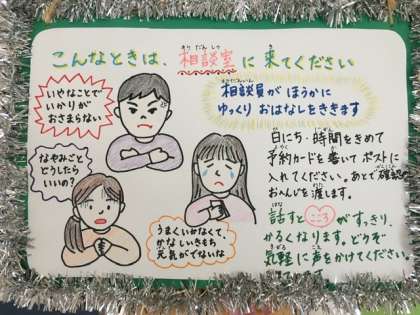 こんなときは、相談室に来てください
いやなことで
いかりが
おさまらない
相談員がほうかごに
ゆっくりおはなしをききます
なやみごと
どうしたら
いいの?
日にち・時間をきめて
予約カードを書いてポストに
入れてください。あとで確認の
おへんじを渡します。
うまくいかなくて、
かなしいきもち
元気がでないな
話すとこころがすっきり、
かるくなります。どうぞ
気軽に声をかけてください。